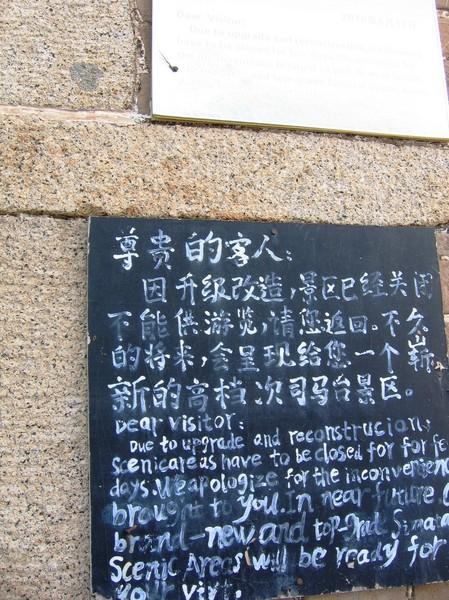 Dear Visitor:
Due to upgrade and reconstruction
尊贵的客人：
因升级改造，景区已经关闭
不能供游览，请您返回。不久
的将来，会呈现给您一个崭
新的高档次司马台景区。
Dear visitor:
Due to upgrade and reconstrucion,
scenicareas have to be closed for for fe
days. We apologize for the inconvenienc
brought to you. In near future.
brand-new and top-Grad Simata
Scenic Areas will be ready for
your virt.